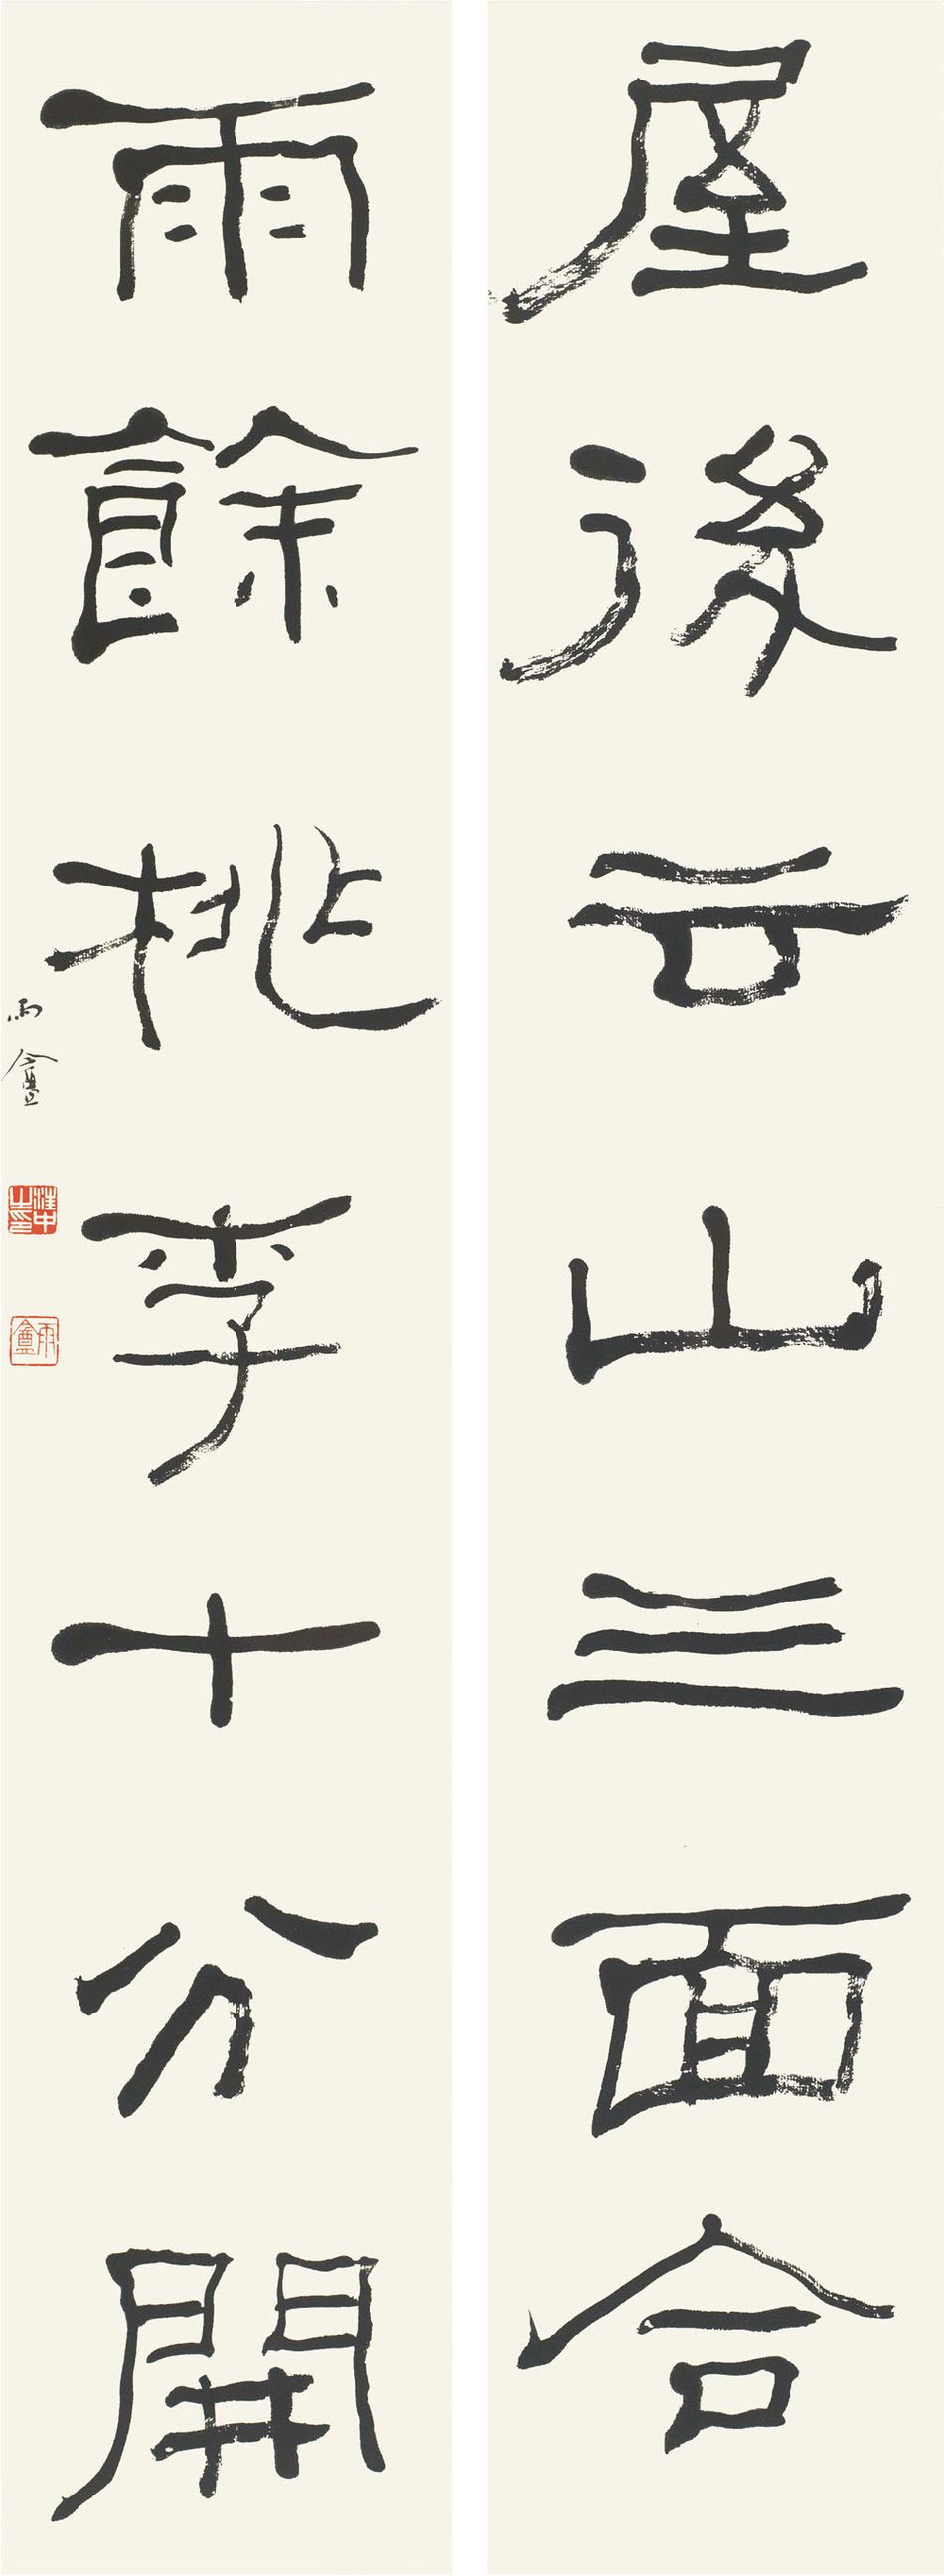 屋後云山三面合
雨餘桃李十分開
雨盦